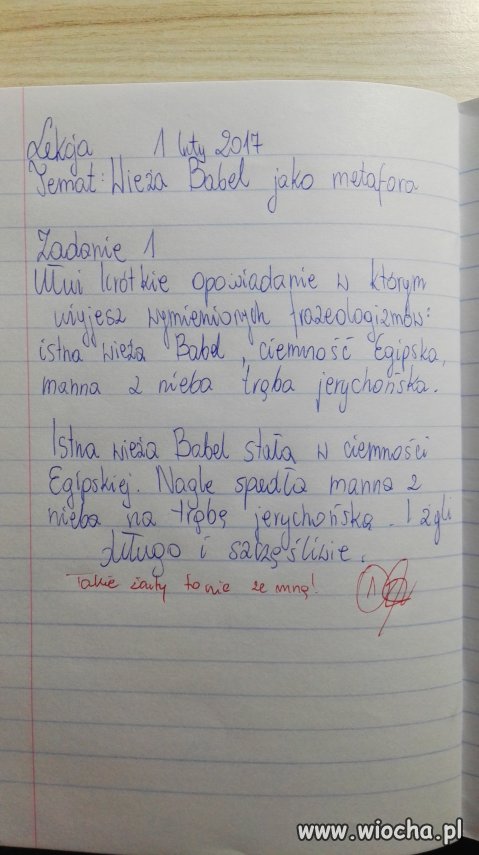 Lekcja 1 luty 2017
Temat: Wieża Babel jako metafora.
Zadanie 1
Ułui krótkie opowiadanie w którym
użyjesz wymienionych frazeologizmów:
istna wieża Babel, ciemność Egipska,
manna z nieba trąba jerychońska.
Istna wieża Babel stała w ciemności
Egipskiej. Nagle spadła manna z
nieba na trąbę jerychońską. I żyli
długo i szczęśliwie.
Takie żarty to nie ze mną! 1
www.wiocha.pl